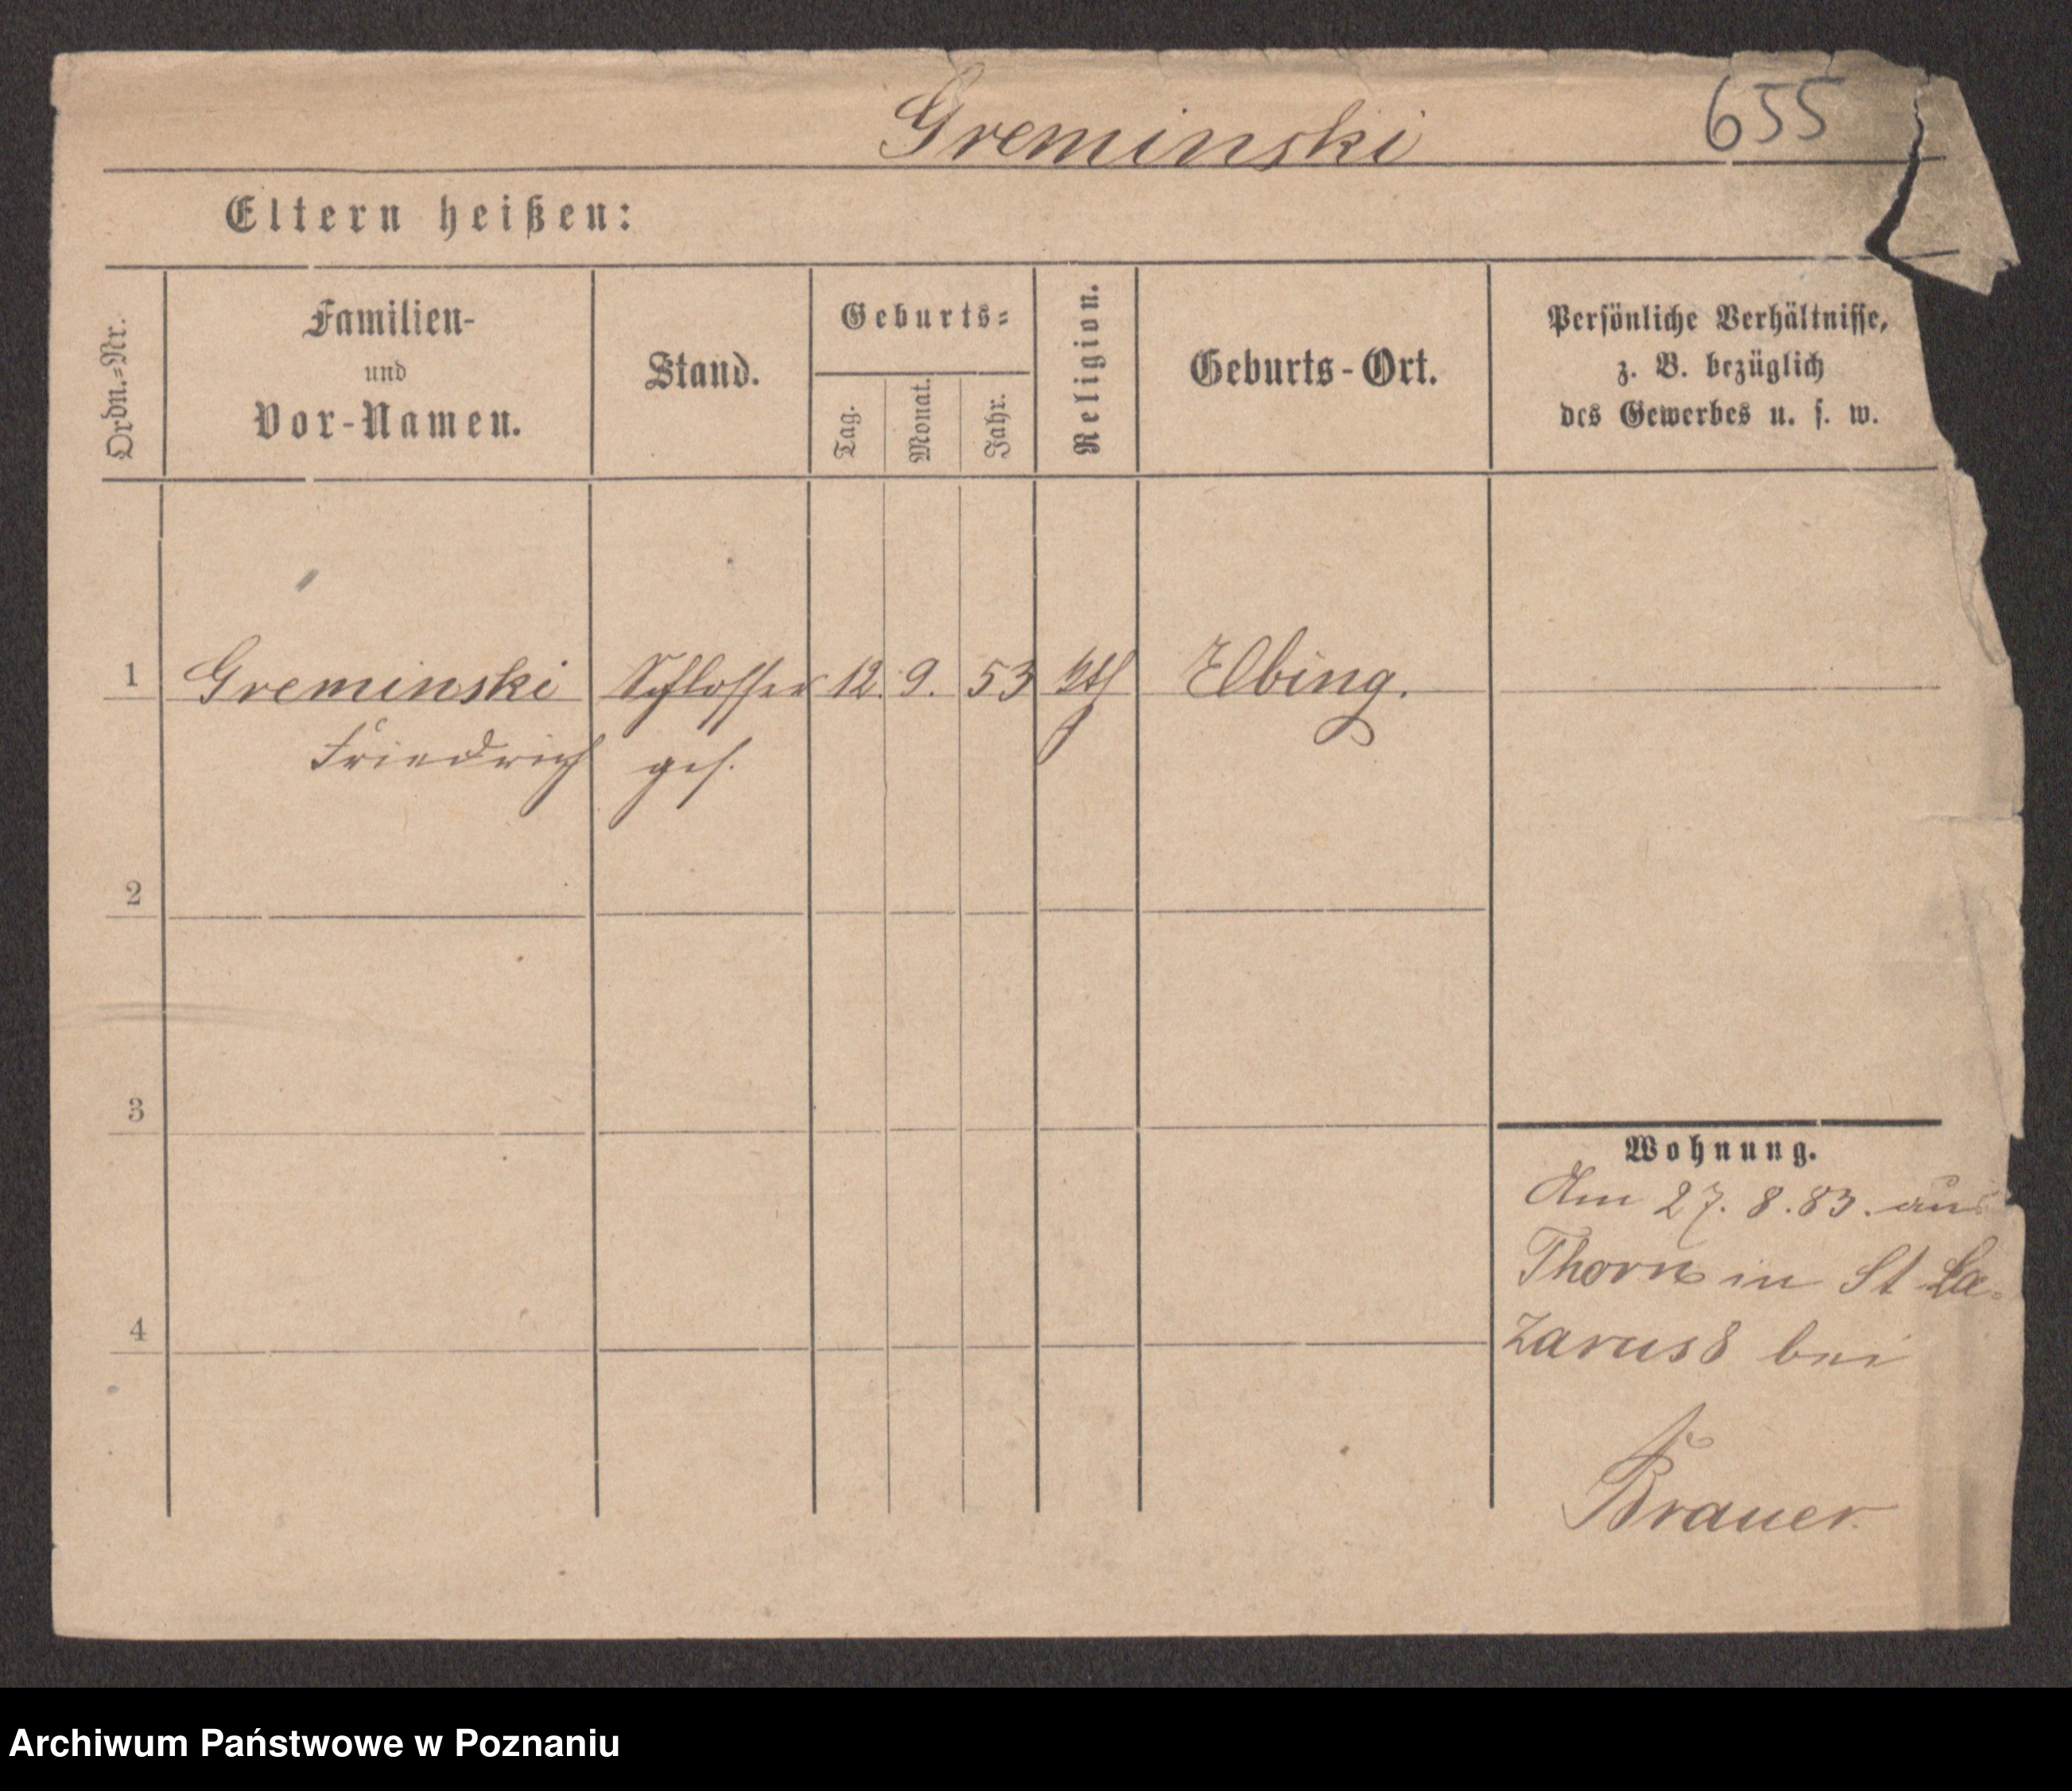 Greminski 655
Eltern heißen:
Ordn.=Nr.
Familien-
und
Vor-Namen.
Stand.
Geburts=
Tag.
Monat.
Jahr.
Religion.
Geburts-Ort.
Persönliche Verhältnisse,
z. B. bezüglich
des Gewerbes u. s. w.
1 Greminski Schlosser 12. 9. 53 kth Elbing.
Friedrich
2
3
4
Wohnung.
Am 27. 8. 83. aus
Thorn in St La-
zarus 8 bei
Brauer.
Archiwum Państwowe w Poznaniu